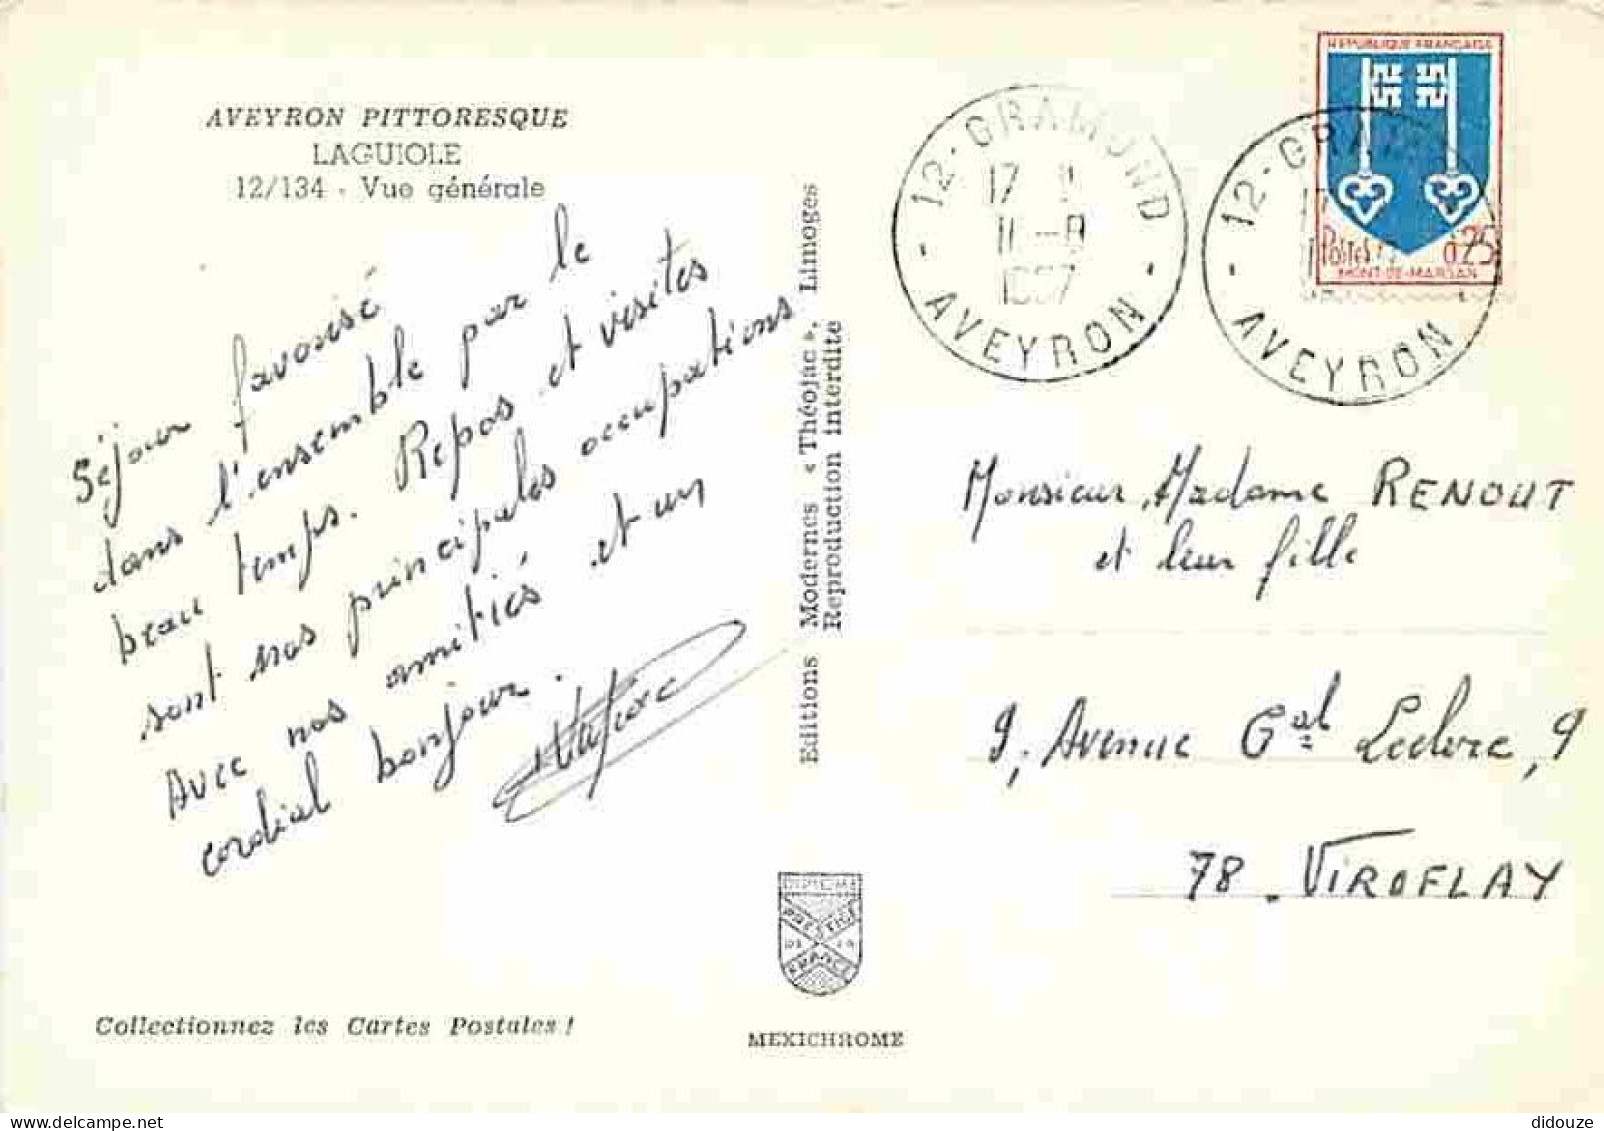 AVEYRON PITTORESQUE
LAGUIOLE
12/134 - Vue générale
Séjour favorisé
dans l'ensemble par le
beau temps. Repos et visites
sont nos principales occupations
Avec nos amitiés et un
cordial bonjour.
Editions Modernes « Théojac », Limoges
Reproduction interdite
12 - GRAMOND
17 H
11 - 8
AVEYRON
12 - GRAMOND
AVEYRON
REPUBLIQUE FRANÇAISE
Postes 0,25
MONT-DE-MARSAN
Monsieur, Madame RENOUT
et leur fille
9, Avenue Gal Leclerc, 9
78 - VIROFLAY
DIPLOME
PRESTIGE
DE LA
FRANCE
Collectionnez les Cartes Postales !
MEXICHROME
didouze